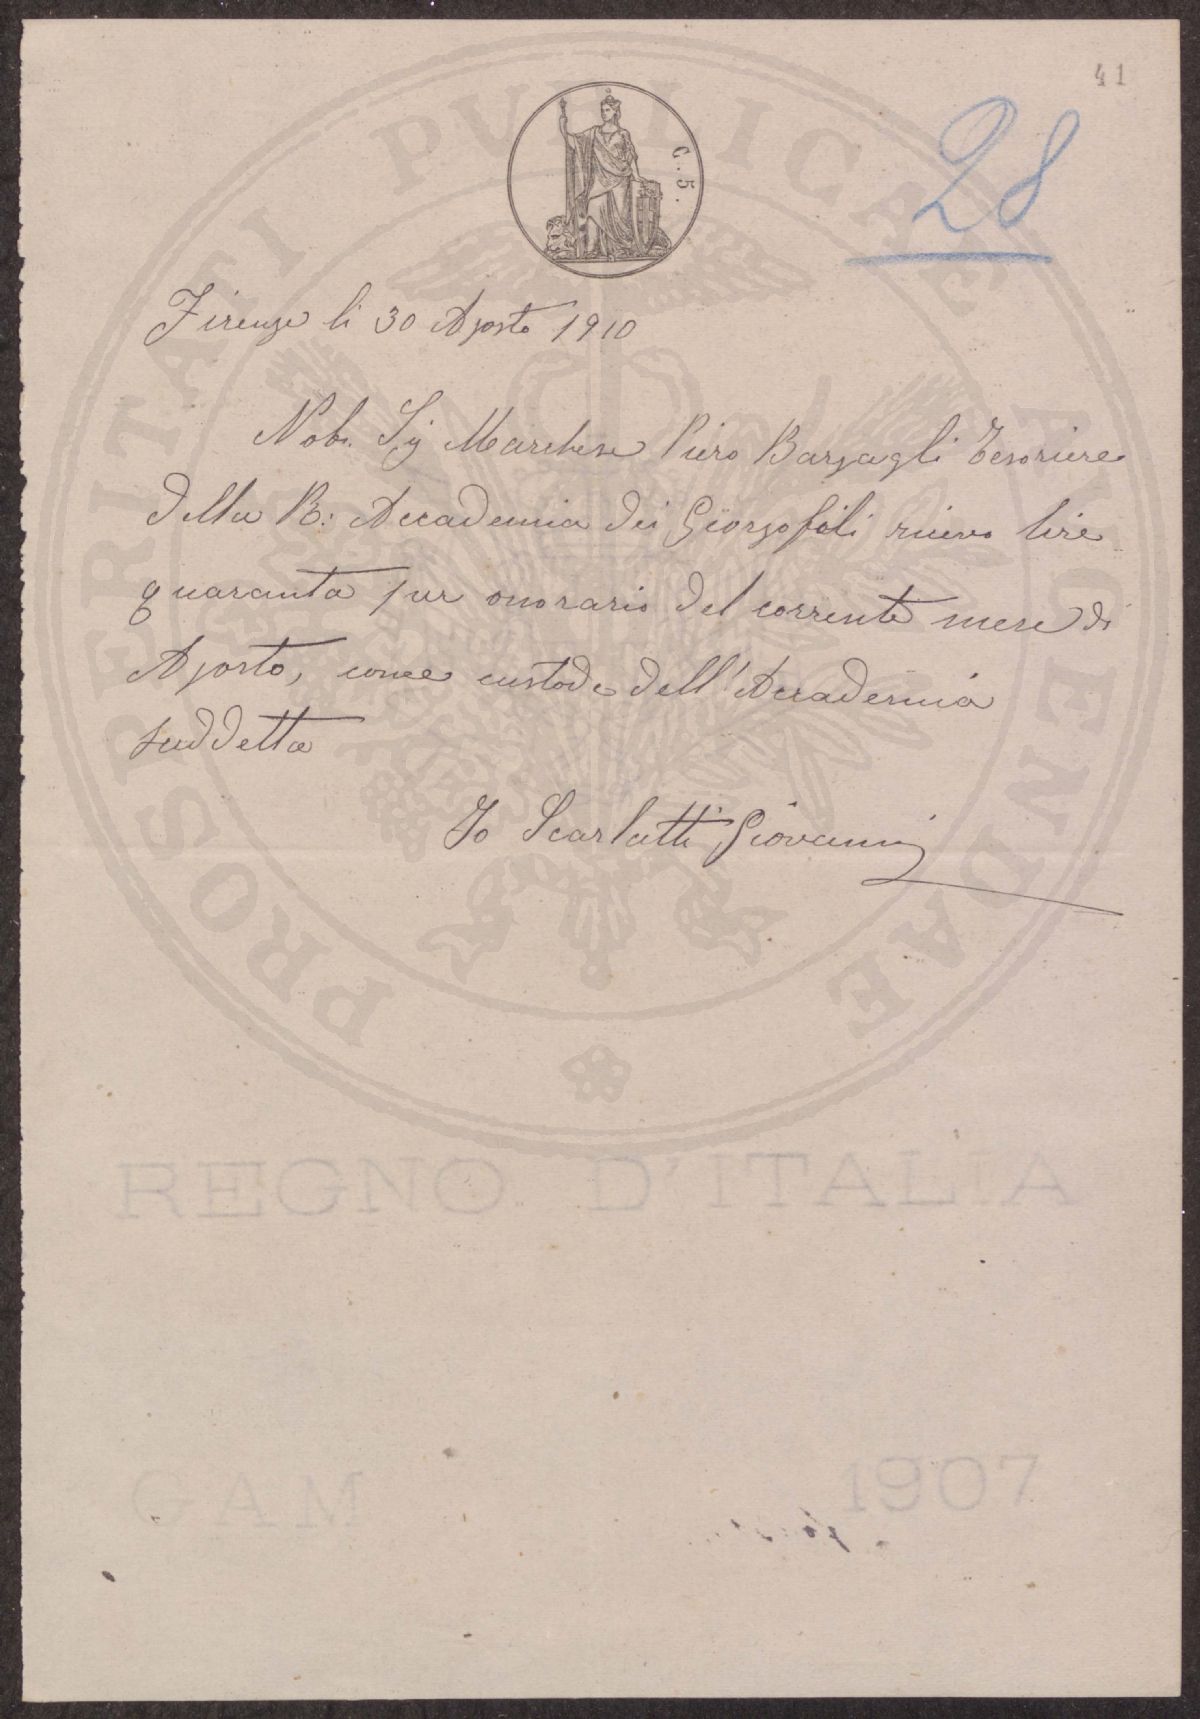 41
28
C. 5.
Firenze li 30 Agosto 1910
Nob. Sig Marchese Piero Bargagli Tesoriere
della R: Accademia dei Giorgofili ricevo lire
quaranta per onorario del corrente mese di
Agosto, come custode dell'Accademia
suddetta
Io Scarlatti Giovanni
PROSPERITATI PUBLICAE AUGENDAE
REGNO D'ITALIA
GAM 1907